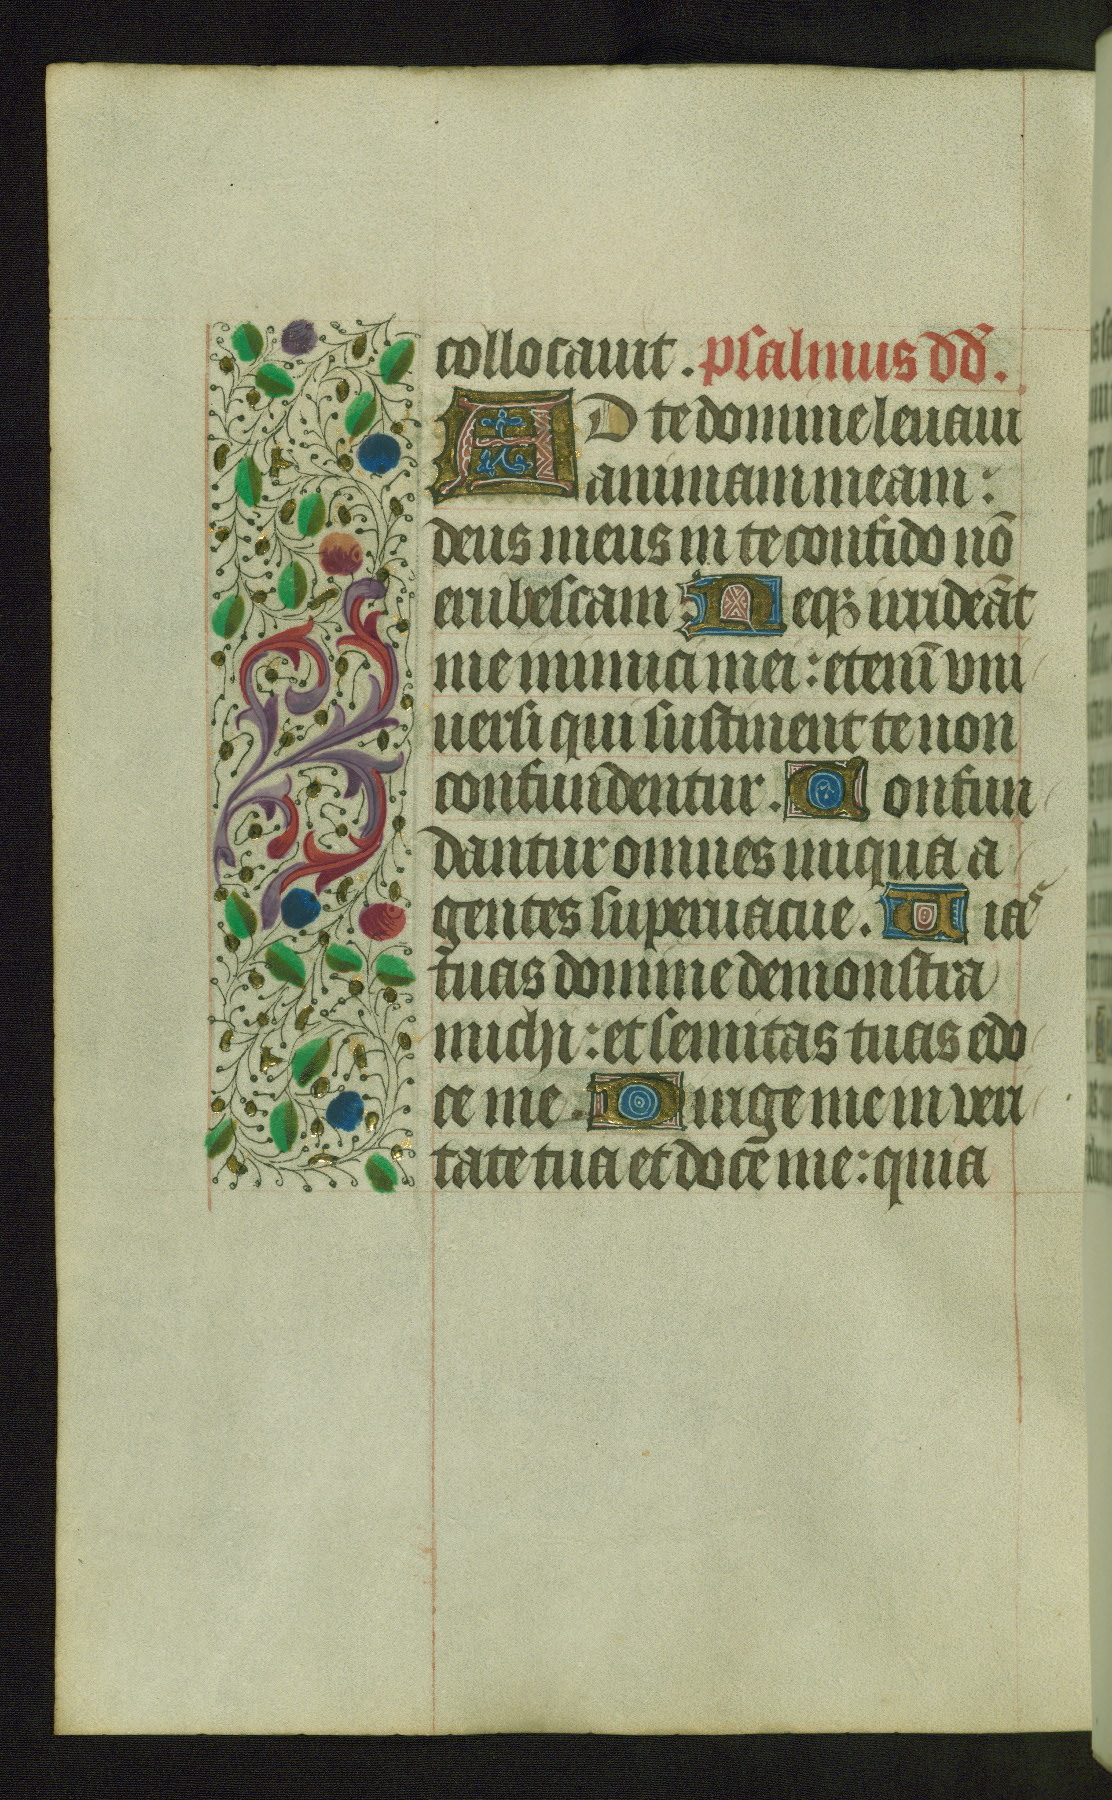 collocauit. psalmus dd̃.
AD te domine leuaui
animam meam:
deus meus in te confido nõ
erubescam Neqꝫ irrideãt
me inimici mei: etenĩ vni
uersi qui sustinent te non
confundentur. Confun
dantur omnes iniqua a
gentes superuacue. Uias
tuas domine demonstra
michi: et semitas tuas edo
ce me. Dirige me in veri
tate tua et doce me: quia